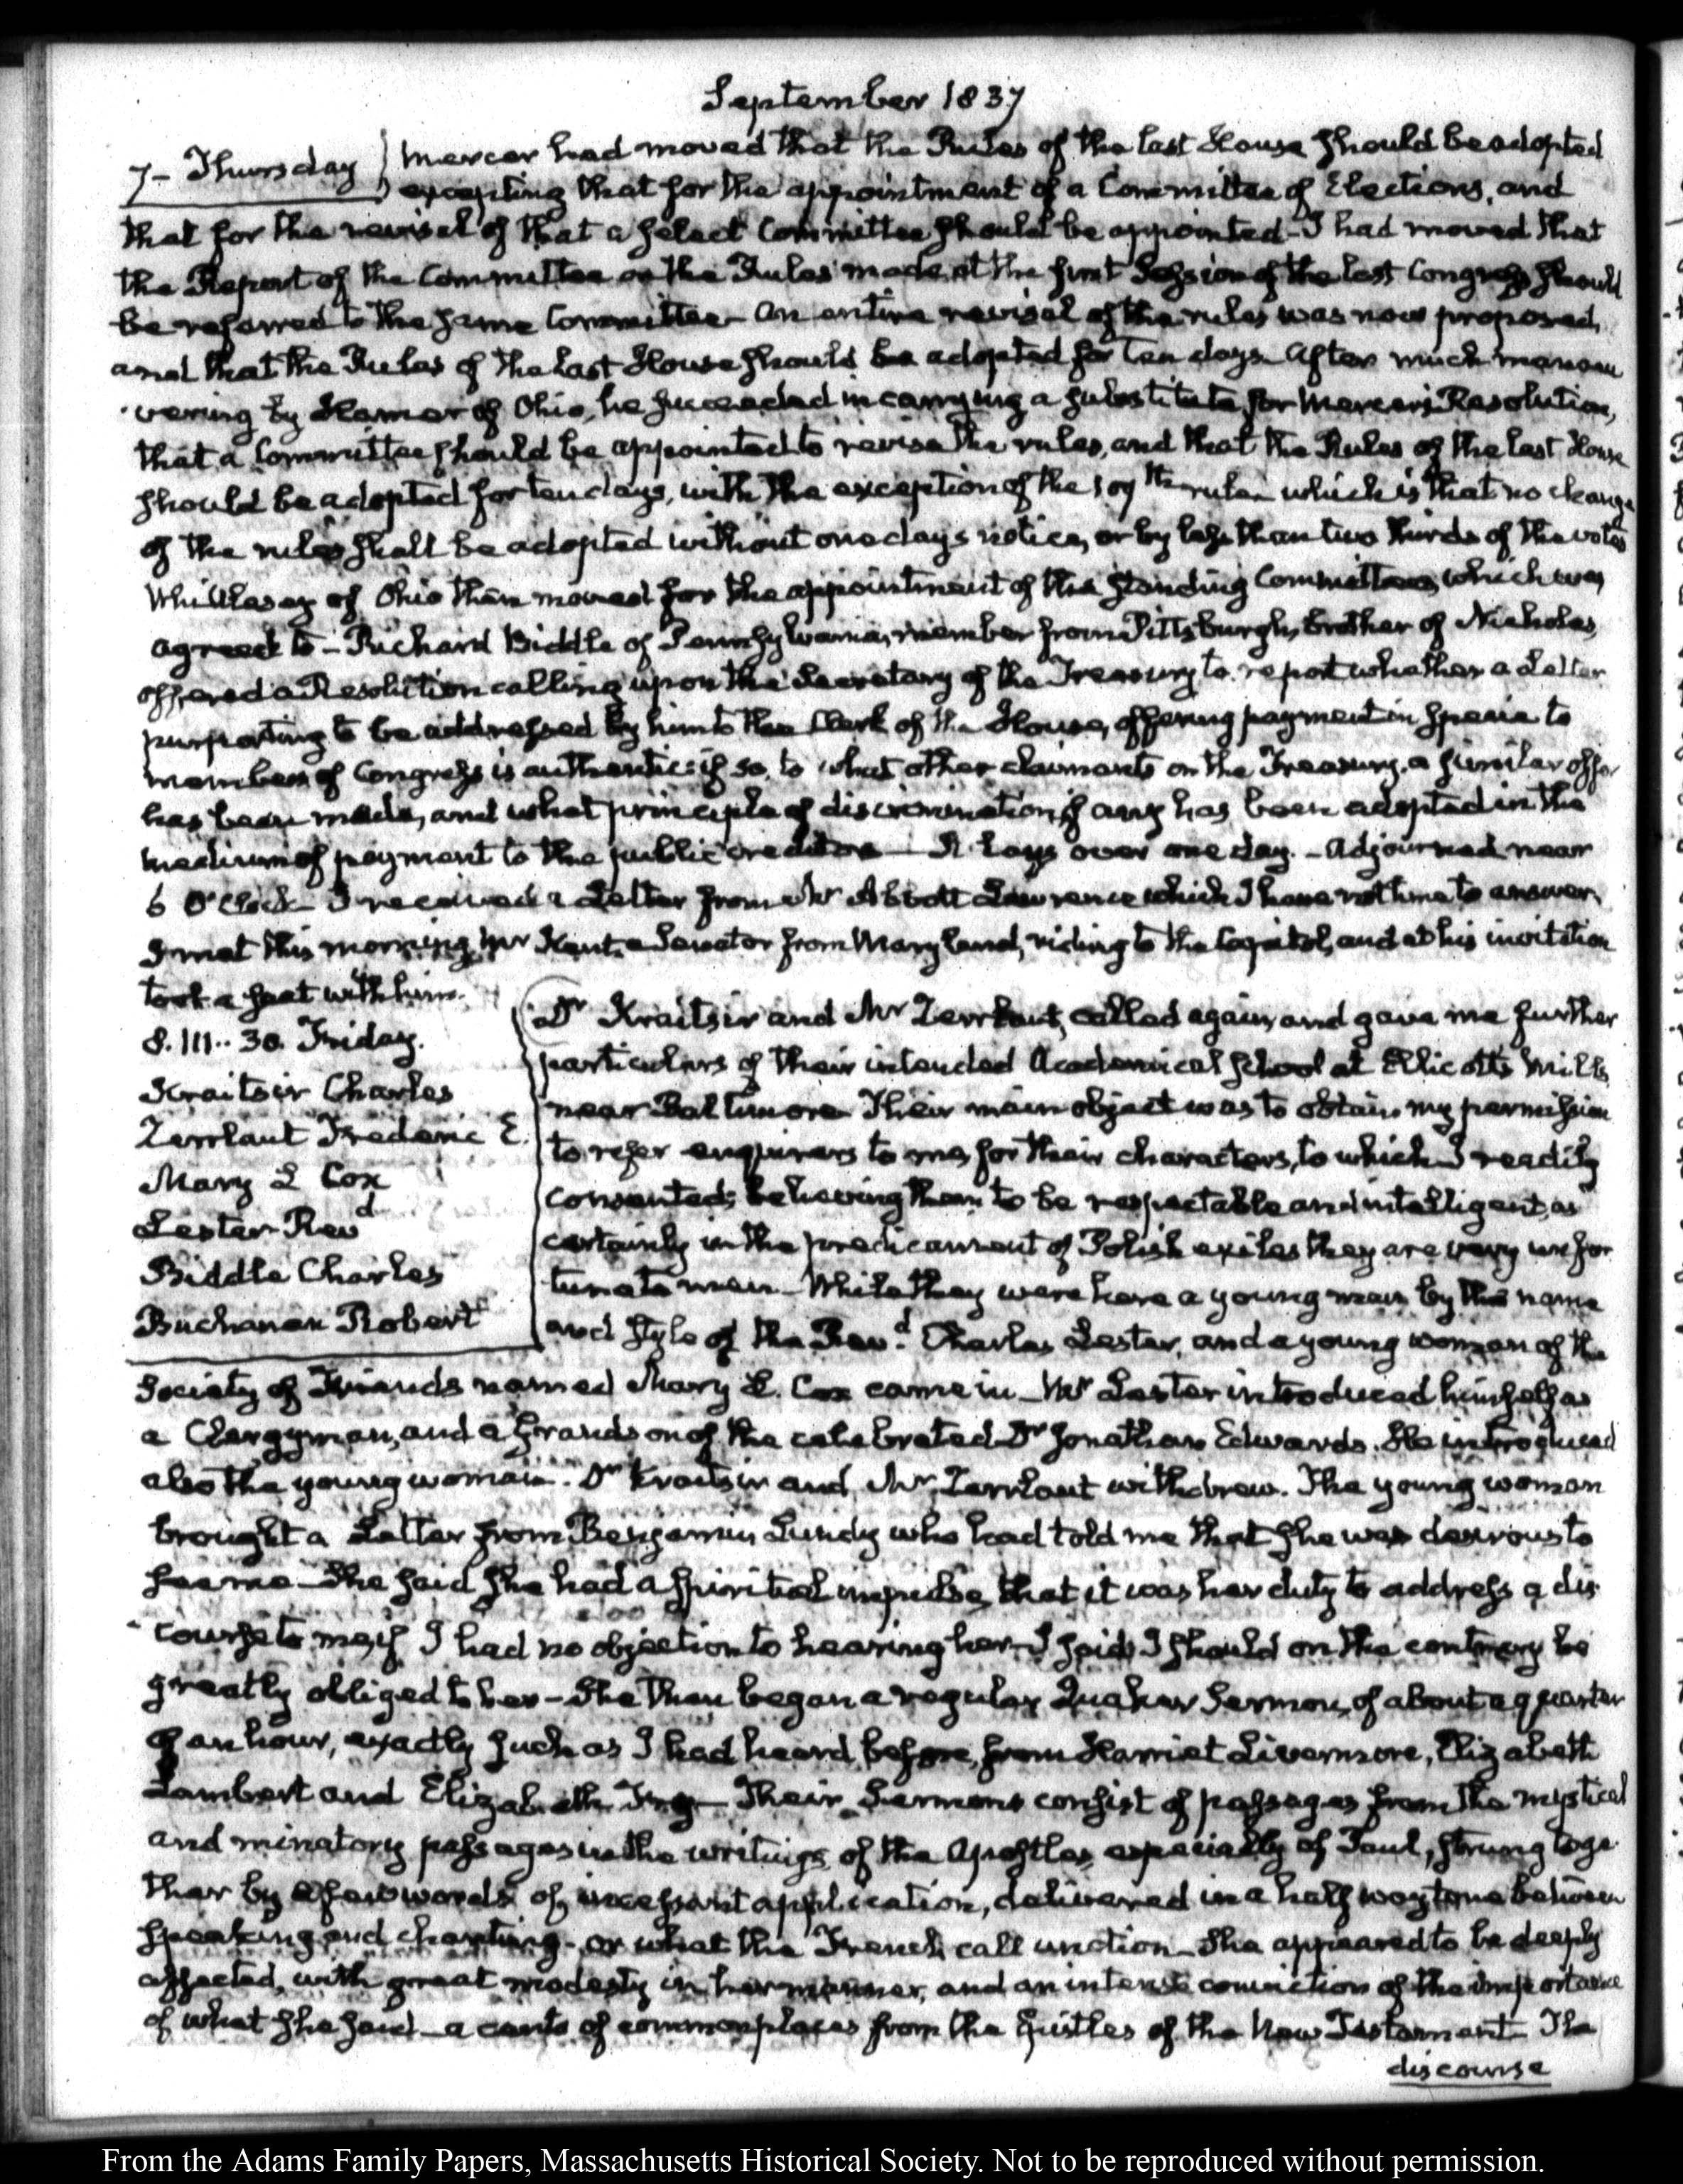 September 1837
7 - Thursday } Mercer had moved that the Rules of the last House should be adopted
excepting that for the appointment of a Committee of Elections, and
that for the revisal of that a select Committee should be appointed - I had moved that
the Report of the Committee on the Rules made at the first Session of the last Congress should
be referred to the same Committee - An entire revisal of the rules was now proposed,
and that the Rules of the last House should be adopted for ten days. After much manoeu
vering by Hamer of Ohio, he succeeded in carrying a substitute for Mercer's Resolution,
that a Committee should be appointed to revise the rules, and that the Rules of the last House
should be adopted for ten days, with the exception of the 107th rule - which is that no change
of the rules shall be adopted without one days notice, or by less than two thirds of the votes
Whittlesey of Ohio then moved for the appointment of the standing Committees, which was
agreed to - Richard Biddle of Pennsylvania, member from Pittsburgh, brother of Nicholas,
offered a Resolution calling upon the Secretary of the Treasury to report whether a Letter
purporting to be addressed by him to the Clerk of the House, offering payment in specie to
members of Congress is authentic: if so, to what other claimants on the Treasury, a similar offer
has been made, and what principle of discrimination if any has been adopted in the
medium of payment to the public creditors - It lays over one day. - Adjourned near
6 O'Clock - I received a Letter from Mr Abbott Lawrence which I have not time to answer.
I met this morning Mr Kent, a Senator from Maryland, riding to the Capitol, and at his invitation
took a seat with him.
8. III.. 30. Friday.
Kraitsir Charles
Zerrlaut Frederic E.
Mary L Cox
Lester Revd
Biddle Charles
Buchanan Robert
Dr Kraitsir and Mr Zerrlaut, called again, and gave me further
particulars of their intended Academical school at Ellicotts Mills
near Baltimore. Their main object was to obtain my permission
to refer enquirers to me for their characters, to which I readily
consented; believing them to be respectable and intelligent, as
certainly in the predicament of Polish exiles they are very unfor
tunate men - While they were here a young man by the name
and style of the Revd. Charles Lester, and a young woman of the
Society of Friends named Mary L. Cox came in - Mr Lester introduced himself as
a Clergyman, and a grandson of the celebrated Dr Jonathan Edwards. He introduced
also the young woman. Dr Kraitsir and Mr Zerrlaut withdrew. The young woman
brought a Letter from Benjamin Lundy who had told me that she was desirous to
see me - She said she had a spiritual impulse, that it was her duty to address a dis
course to me, if I had no objection to hearing her - I said I should on the contrary be
greatly obliged to her - She then began a regular Quaker Sermon, of about a quarter
of an hour, exactly such as I had heard before, from Harriet Livermore, Elizabeth
Lambert and Elizabeth Fry - Their Sermons consist of passages from the mystical
and minatory passages in the writings of the Apostles especially of Paul, strung toge
ther by a few words of incessant application, delivered in a half way tone between
speaking and chanting - or what the French call unction - She appeared to be deeply
affected, with great modesty in her manner, and an intense conviction of the importance
of what she said - a cento of commonplaces from the Epistles of the New Testament - The
discourse
From the Adams Family Papers, Massachusetts Historical Society. Not to be reproduced without permission.